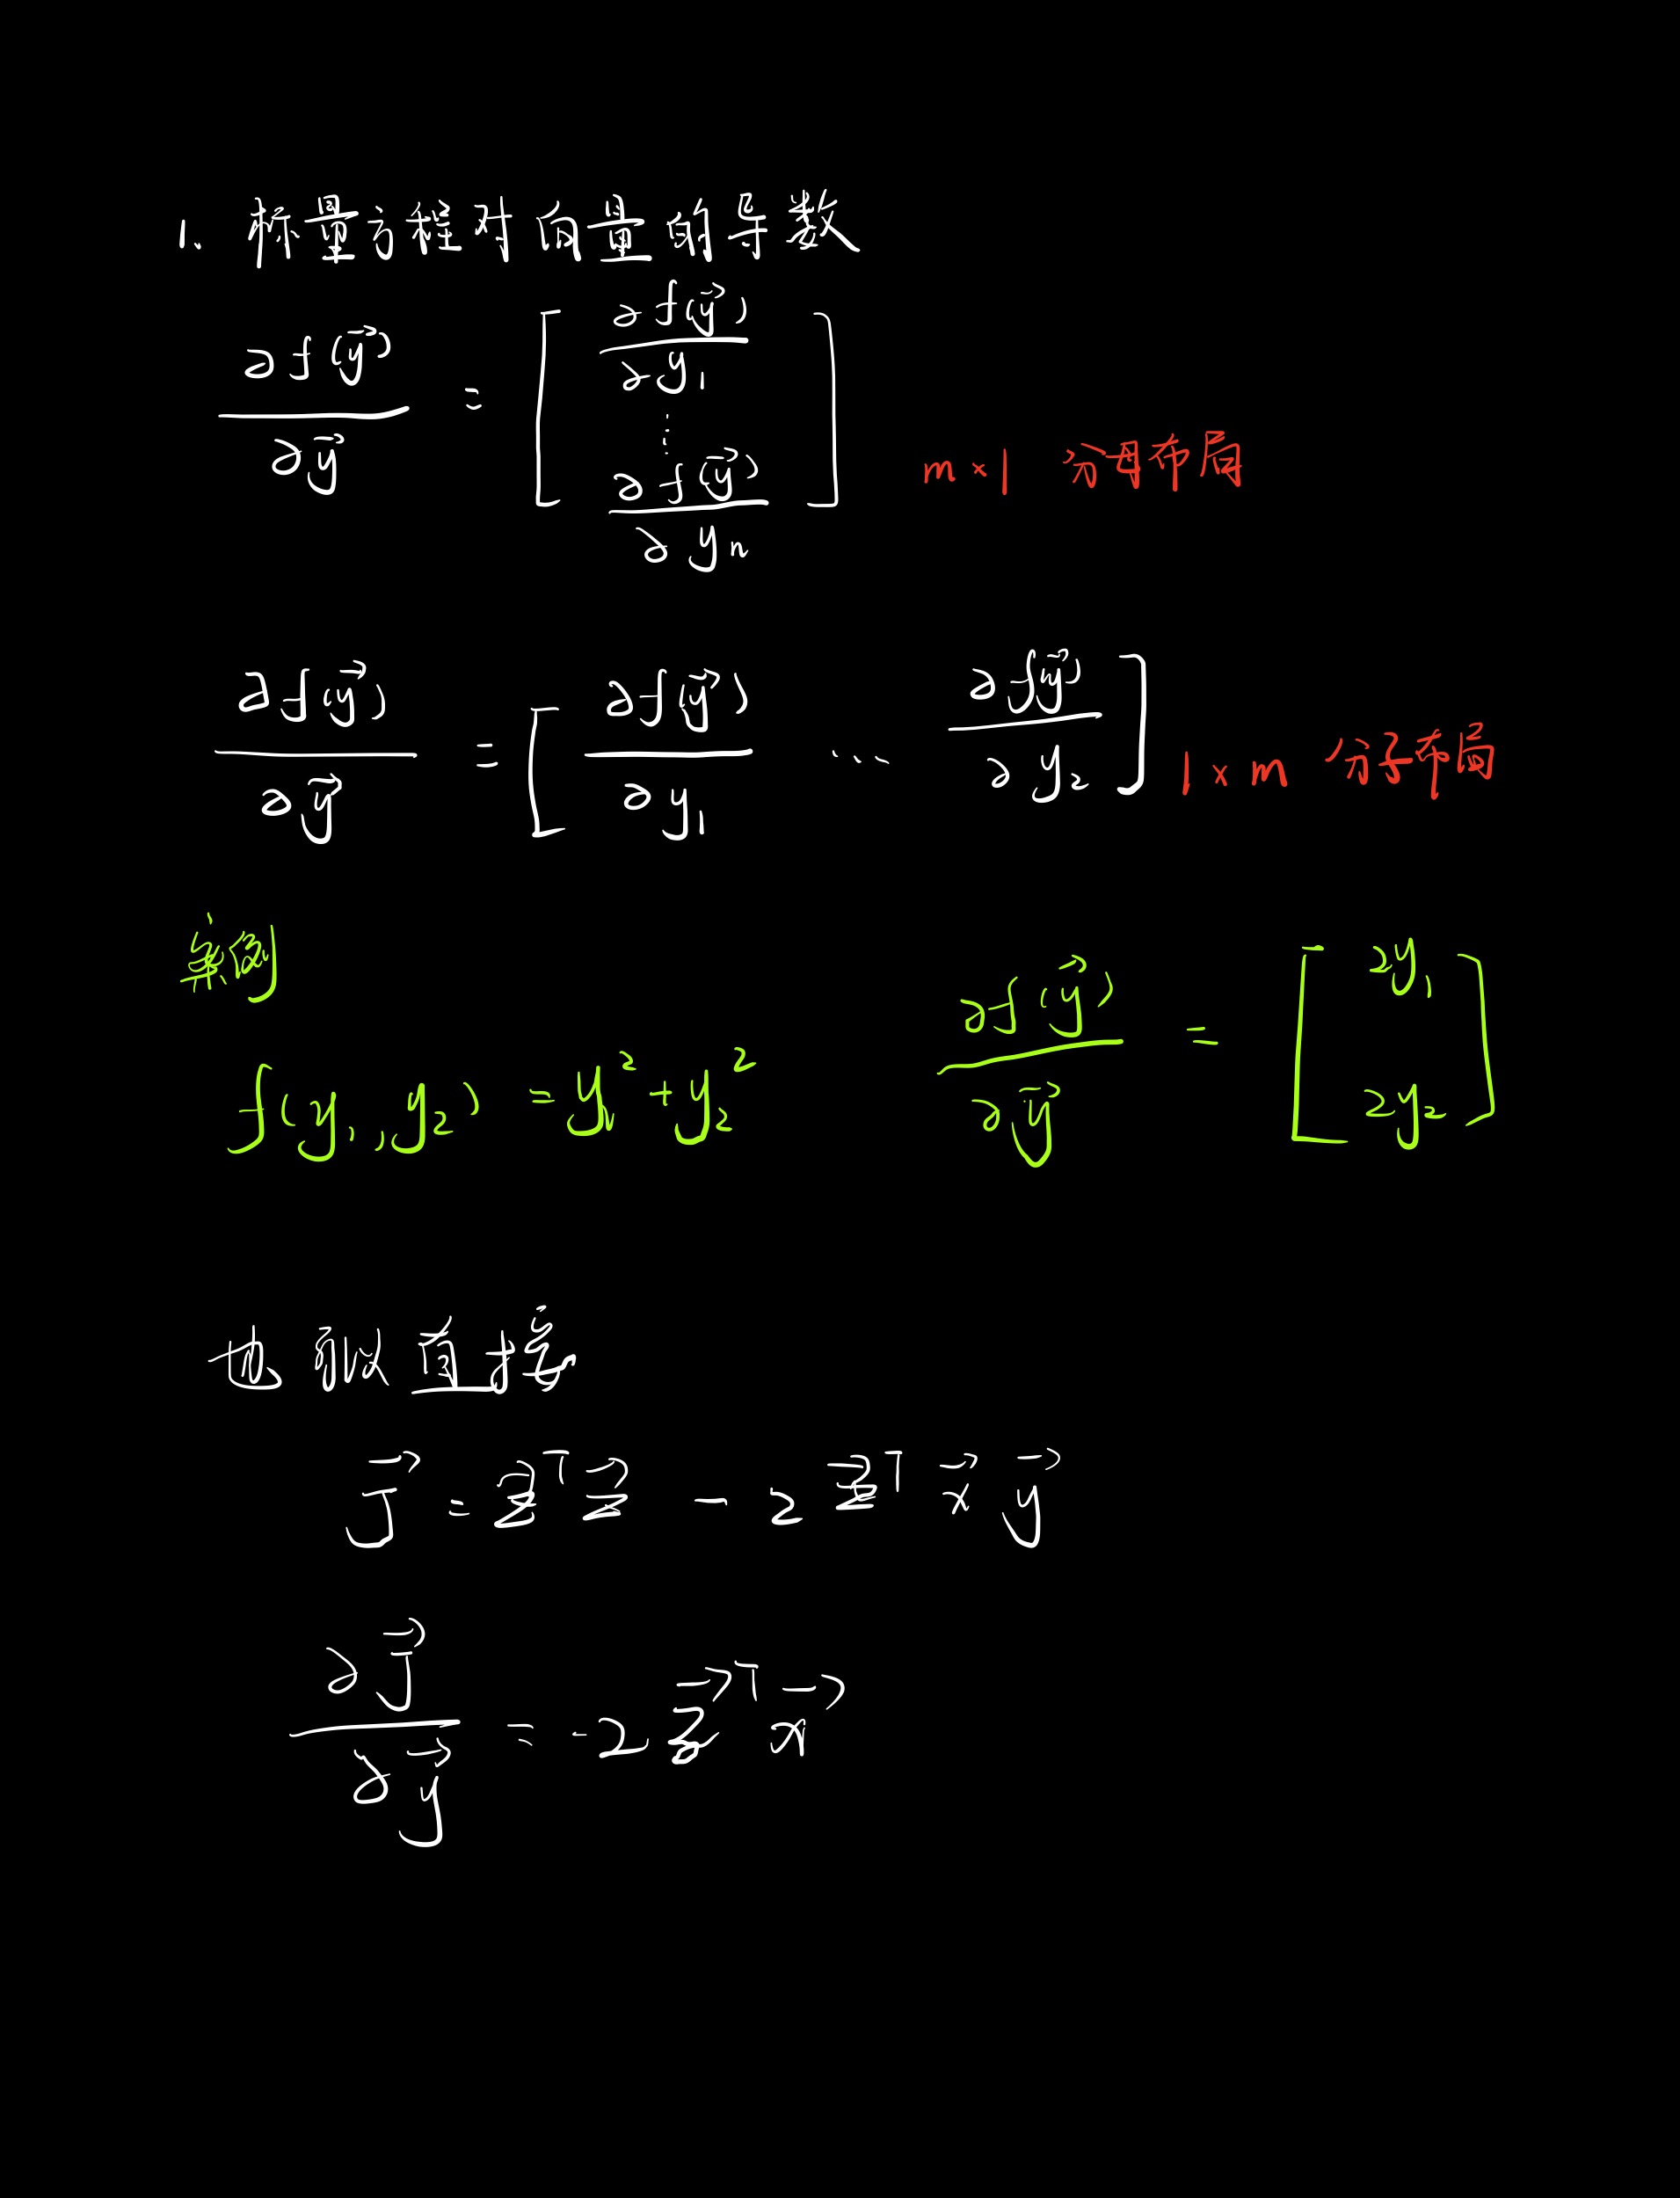 1. 标量方程对向量的导数
∂f(y⃗)/∂y⃗ = [ ∂f(y⃗)/∂y₁ ⋮ ∂f(y⃗)/∂yₙ ] m×1 分母布局
∂f(y⃗)/∂y⃗ = [ ∂f(y⃗)/∂y₁ ... ∂f(y⃗)/∂y₂ ] 1×m 分子布局
案例
f(y₁,y₂) = y₁² + y₂² ∂f(y⃗)/∂y⃗ = [ 2y₁ 2y₂ ]
也可以直接
J⃗ = z⃗ᵀ z⃗ - 2 z⃗ᵀ x⃗ y⃗
∂J⃗/∂y⃗ = -2 z⃗ᵀ x⃗